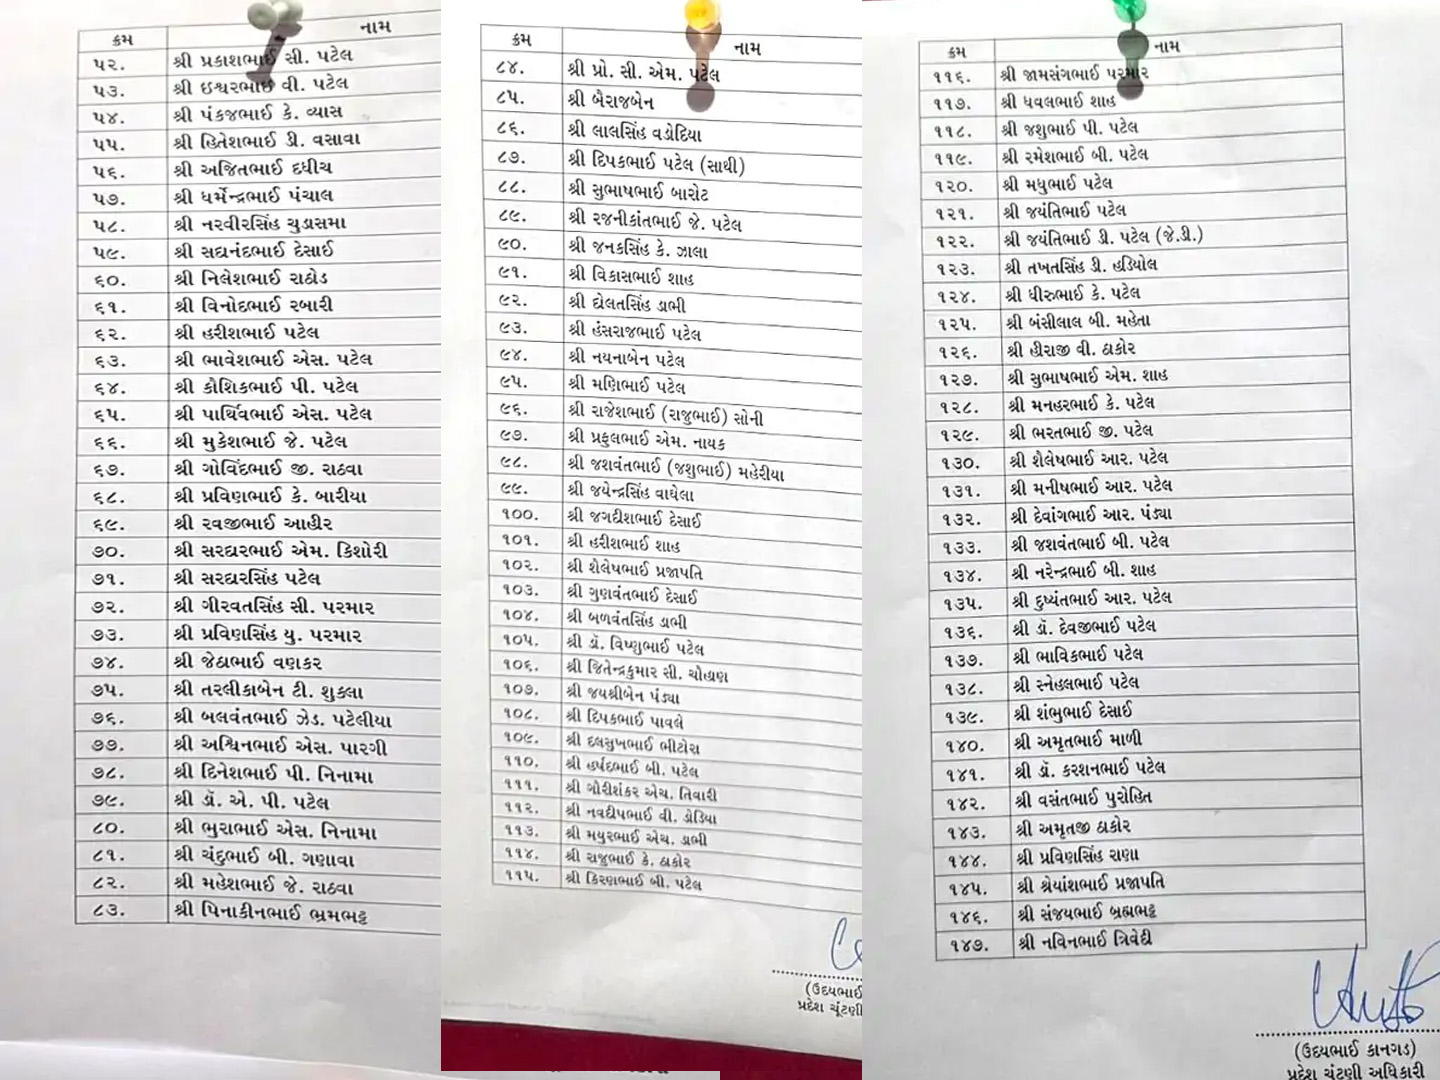 ક્રમ નામ
૫૨. શ્રી પ્રકાશભાઈ સી. પટેલ
૫૩. શ્રી ઇશ્વરભાઈ વી. પટેલ
૫૪. શ્રી પંકજભાઈ કે. વ્યાસ
૫૫. શ્રી હિતેશભાઈ ડી. વસાવા
૫૬. શ્રી અજિતભાઈ દધીચ
૫૭. શ્રી ધર્મેન્દ્રભાઈ પંચાલ
૫૮. શ્રી નરવીરસિંહ ચુડાસમા
૫૯. શ્રી સદાનંદભાઈ દેસાઈ
૬૦. શ્રી નિલેશભાઈ રાઠોડ
૬૧. શ્રી વિનોદભાઈ રબારી
૬૨. શ્રી હરીશભાઈ પટેલ
૬૩. શ્રી ભાવેશભાઈ એસ. પટેલ
૬૪. શ્રી કૌશિકભાઈ પી. પટેલ
૬૫. શ્રી પાર્થિવભાઈ એસ. પટેલ
૬૬. શ્રી મુકેશભાઈ જે. પટેલ
૬૭. શ્રી ગોવિંદભાઈ જી. રાઠવા
૬૮. શ્રી પ્રવિણભાઈ કે. બારીયા
૬૯. શ્રી રવજીભાઈ આહીર
૭૦. શ્રી સરદારભાઈ એમ. કિશોરી
૭૧. શ્રી સરદારસિંહ પટેલ
૭૨. શ્રી ગીરવતસિંહ સી. પરમાર
૭૩. શ્રી પ્રવિણસિંહ યુ. પરમાર
૭૪. શ્રી જેઠાભાઈ વણકર
૭૫. શ્રી તરલીકાબેન ટી. શુક્લા
૭૬. શ્રી બલવંતભાઈ ઝેડ. પટેલીયા
૭૭. શ્રી અશ્વિનભાઈ એસ. પારગી
૭૮. શ્રી દિનેશભાઈ પી. નિનામા
૭૯. શ્રી ડૉ. એ. પી. પટેલ
૮૦. શ્રી ભુરાભાઈ એસ. નિનામા
૮૧. શ્રી ચંદુભાઈ બી. ગણાવા
૮૨. શ્રી મહેશભાઈ જે. રાઠવા
૮૩. શ્રી પિનાકીનભાઈ ભ્રમભટ્ટ
ક્રમ નામ
૮૪. શ્રી પ્રો. સી. એમ. પટેલ
૮૫. શ્રી બૈરાજબેન
૮૬. શ્રી લાલસિંહ વડોદિયા
૮૭. શ્રી દિપકભાઈ પટેલ (સાથી)
૮૮. શ્રી સુભાષભાઈ બારોટ
૮૯. શ્રી રજનીકાંતભાઈ જે. પટેલ
૯૦. શ્રી જનકસિંહ કે. ઝાલા
૯૧. શ્રી વિકાસભાઈ શાહ
૯૨. શ્રી દોલતસિંહ ડાભી
૯૩. શ્રી હંસરાજભાઈ પટેલ
૯૪. શ્રી નયનાબેન પટેલ
૯૫. શ્રી મણિભાઈ પટેલ
૯૬. શ્રી રાજેશભાઈ (રાજુભાઈ) સોની
૯૭. શ્રી પ્રફુલભાઈ એમ. નાયક
૯૮. શ્રી જશવંતભાઈ (જશુભાઈ) મહેરીયા
૯૯. શ્રી જયેન્દ્રસિંહ વાઘેલા
૧૦૦. શ્રી જગદીશભાઈ દેસાઈ
૧૦૧. શ્રી હરીશભાઈ શાહ
૧૦૨. શ્રી શૈલેષભાઈ પ્રજાપતિ
૧૦૩. શ્રી ગુણવંતભાઈ દેસાઈ
૧૦૪. શ્રી બળવંતસિંહ ડાભી
૧૦૫. શ્રી ડૉ. વિષ્ણુભાઈ પટેલ
૧૦૬. શ્રી જિતેન્દ્રકુમાર સી. ચૌહાણ
૧૦૭. શ્રી જયશ્રીબેન પંડ્યા
૧૦૮. શ્રી દિપકભાઈ પાવલે
૧૦૯. શ્રી દલસુખભાઈ ભીટોરા
૧૧૦. શ્રી હર્ષદભાઈ બી. પટેલ
૧૧૧. શ્રી ગૌરીશંકર એચ. તિવારી
૧૧૨. શ્રી નવદીપભાઈ વી. ડોડિયા
૧૧૩. શ્રી મયુરભાઈ એચ. ડાભી
૧૧૪. શ્રી રાજુભાઈ કે. ઠાકોર
૧૧૫. શ્રી કિરણભાઈ બી. પટેલ
(ઉદયભાઈ
પ્રદેશ ચૂંટણી
ક્રમ નામ
૧૧૬. શ્રી જામસંગભાઈ પરમાર
૧૧૭. શ્રી ધવલભાઈ શાહ
૧૧૮. શ્રી જશુભાઈ પી. પટેલ
૧૧૯. શ્રી રમેશભાઈ બી. પટેલ
૧૨૦. શ્રી મધુભાઈ પટેલ
૧૨૧. શ્રી જયંતિભાઈ પટેલ
૧૨૨. શ્રી જયંતિભાઈ ડી. પટેલ (જે.ડી.)
૧૨૩. શ્રી તખતસિંહ ડી. હડિયોલ
૧૨૪. શ્રી ધીરુભાઈ કે. પટેલ
૧૨૫. શ્રી બંસીલાલ બી. મહેતા
૧૨૬. શ્રી હીરાજી વી. ઠાકોર
૧૨૭. શ્રી સુભાષભાઈ એમ. શાહ
૧૨૮. શ્રી મનહરભાઈ કે. પટેલ
૧૨૯. શ્રી ભરતભાઈ જી. પટેલ
૧૩૦. શ્રી શૈલેષભાઈ આર. પટેલ
૧૩૧. શ્રી મનીષભાઈ આર. પટેલ
૧૩૨. શ્રી દેવાંગભાઈ આર. પંડ્યા
૧૩૩. શ્રી જશવંતભાઈ બી. પટેલ
૧૩૪. શ્રી નરેન્દ્રભાઈ બી. શાહ
૧૩૫. શ્રી દુષ્યંતભાઈ આર. પટેલ
૧૩૬. શ્રી ડૉ. દેવજીભાઈ પટેલ
૧૩૭. શ્રી ભાવિકભાઈ પટેલ
૧૩૮. શ્રી સ્નેહલભાઈ પટેલ
૧૩૯. શ્રી શંભુભાઈ દેસાઈ
૧૪૦. શ્રી અમૃતભાઈ માળી
૧૪૧. શ્રી ડૉ. કરશનભાઈ પટેલ
૧૪૨. શ્રી વસંતભાઈ પુરોહિત
૧૪૩. શ્રી અમૃતજી ઠાકોર
૧૪૪. શ્રી પ્રવિણસિંહ રાણા
૧૪૫. શ્રી શ્રેયાંશભાઈ પ્રજાપતિ
૧૪૬. શ્રી સંજયભાઈ બ્રહ્મભટ્ટ
૧૪૭. શ્રી નવિનભાઈ ત્રિવેદી
(ઉદયભાઈ કાનગડ)
પ્રદેશ ચૂંટણી અધિકારી